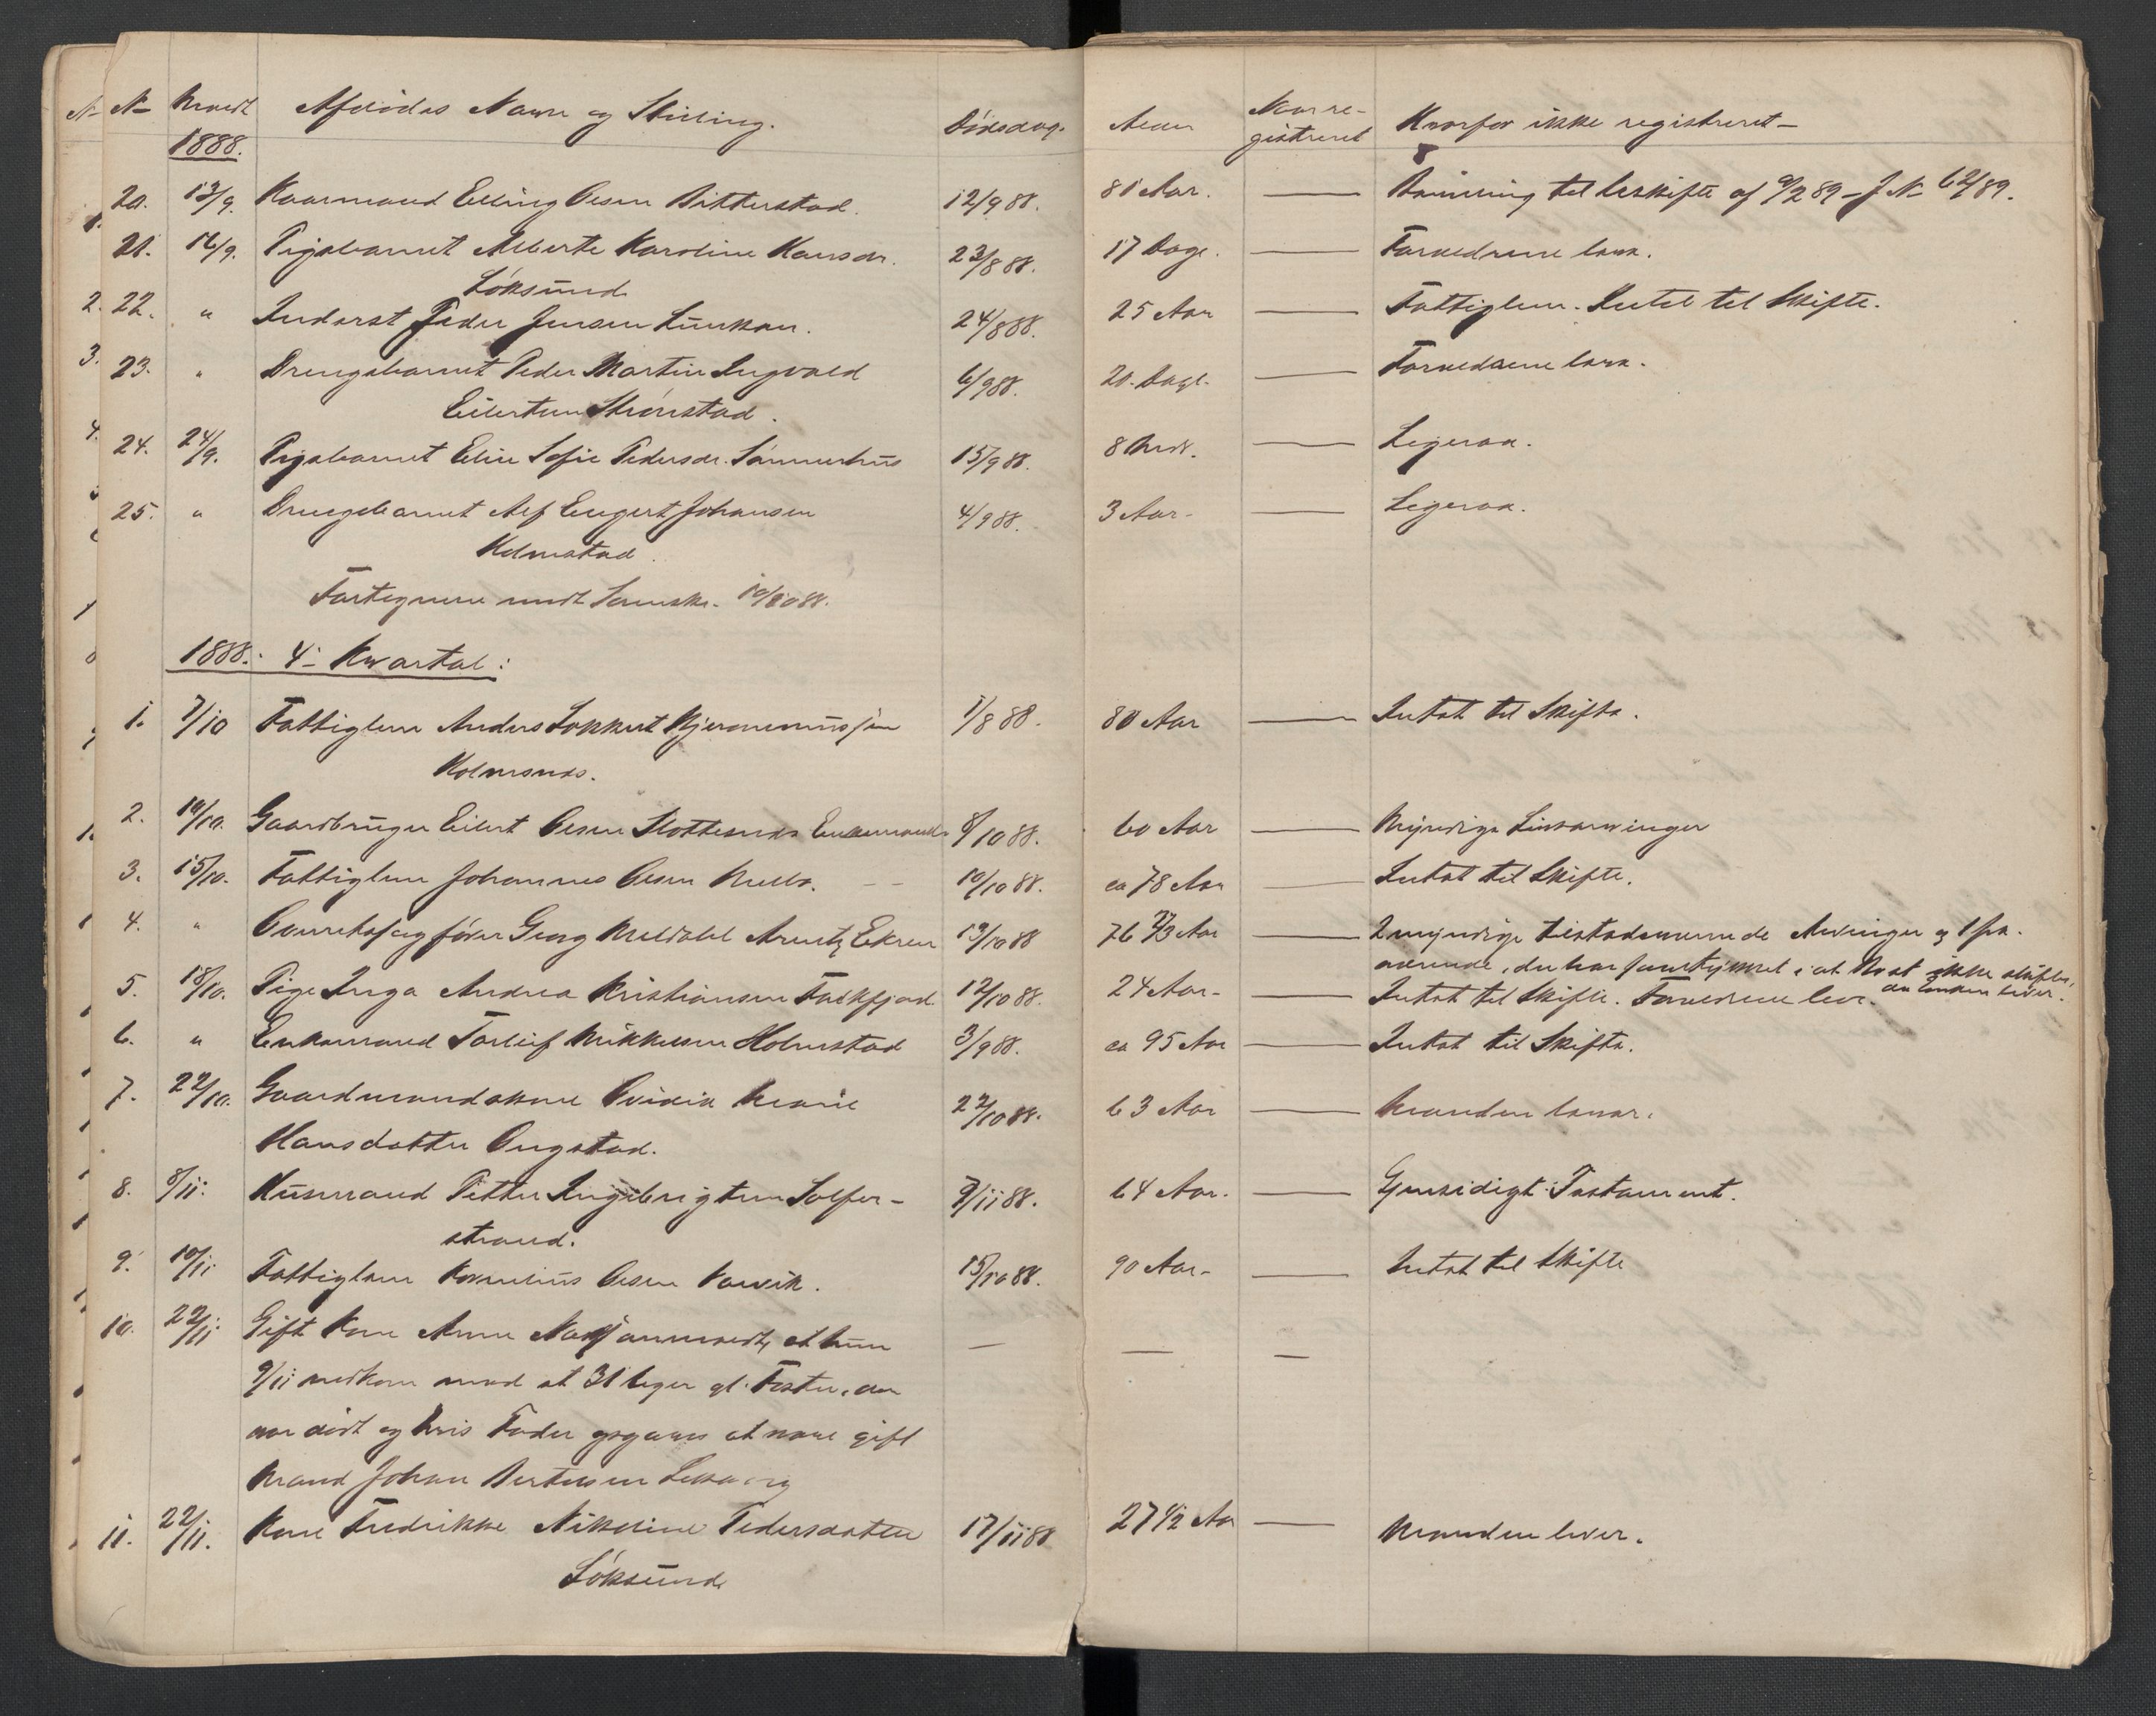 No Anmeldt Afdødes Navn og Stilling. Dødsdag. Alder Naar registreret Hvorfor ikke registreret
1888.
20. 13/9. Kaarmand Elling Olsen Bitterstad. 12/9 88. 81 Aar. — Bevilling til Uskifte af 9/2 89 – J No 62/89.
21. 16/9. Pigebarnet Alberte Karoline Hansdr. 23/8 88. 17 Dage. — Forældrene leve.
Löksund
22. " Inderst Peder Jensen 24/8 88. 25 Aar — Fattiglem. Intet til Skifte.
23. " Drengebarnet Peder Martin Ingvald 6/9 88. 20. Dage. — Forældrene leve.
Eilertsen Strönstad.
24. 24/9. Pigebarnet Eline Sofie Pedersdr. Sommerhus 15/9 88. 8 Mdr. — Ligesaa.
25. " Drengebarnet Alf Eengert Johansen 4/9 88. 3 Aar — Ligesaa.
Holmstad.
Fortegnelse sendt Sorenskr. 10/10 88.
1888: 4 Kvartal:
1. 7/10 Fattiglem Anders Lokkert 1/8 88. 80 Aar — Intet til Skifte.
Holmsnes.
2. 10/10. Gaardbruger Eilert Olsen Slottesnes Enkemand 8/10 88. 60 Aar — Myndige Livsarvinger
3. 15/10. Fattiglem Johannes Olsen Melbo. 10/10 88. ca 78 Aar — Intet til Skifte.
4. " Overretssagfører Georg Meldahl Arentz Ekren 13/10 88 76 2/3 Aar — 2 myndige tilstedeværende Arvinger og 1 fra-
værende, der har samtykket i at Boet ikke skiftes,
da Enken lever.
5. 18/10. Pige Inga Andrea Kristiansen Falkfjord 12/10 88. 24 Aar — Intet til Skifte. Forældrene leve.
6. " Enkemand Torleif Mikkelsen Holmstad 3/9 88. ca 95 Aar — Intet til Skifte.
7. 22/10. Gaardmandskone Ovidia Marie 22/10 88. 63 Aar — Manden lever.
Hansdatter Ongstad.
8. 8/11. Husmand Petter Ingebrigtsen Selfer- 7/11 88. 64 Aar. — Gjensidigt Testament.
strand.
9. 10/11 Fattiglem Kornelius Olsen Kavik. 15/10 88. 90 Aar — Intet til Skifte
10. 22/11 Gift Kone Anna anmeldt, at hun — — —
9/11 nedkom med et 31 Uger gl. Foster, der
var dødt og hvis Fader opgaves at være gift
Mand Johan Bertensen
11. 22/11. Kone Fredrikke Nikoline Pedersdatter 17/11 88 27 1/2 Aar — Manden lever.
Löksund